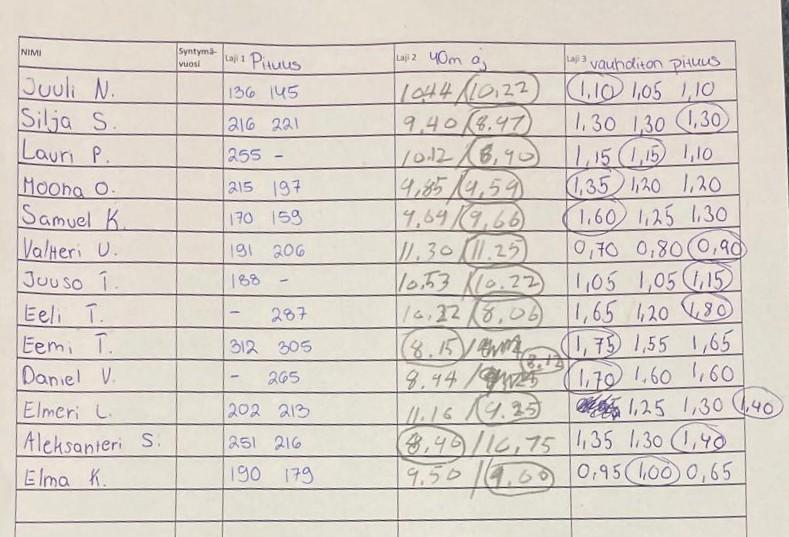 NIMI Syntymä-vuosi Laji 1 Pituus Laji 2 40m aj Laji 3 vauhditon pituus
Juuli N. 136 145 10.44/10,22 1,10 1,05 1,10
Silja S. 216 221 9,40/8.97 1,30 1,30 1,30
Lauri P. 255 - 10.12/8,90 1,15 1,15 1,10
Moona O. 215 197 9,85/9,59 1,35 1,20 1,20
Samuel K. 170 159 9.69/9,66 1,60 1,25 1,30
Valtteri U. 191 206 11.30/11.25 0,70 0,80 0,90
Juuso T. 188 - 10,53/10.22 1,05 1,05 1,15
Eeli T. - 287 10,22/8,06 1,65 1,20 1,80
Eemi T. 312 305 8.15/ 1,75 1,55 1,65
Daniel V. - 265 8.94/ 8.12 1,70 1.60 1,60
Elmeri L. 202 213 11.16/9.25 1,25 1,30 1,40
Aleksanteri S. 251 216 8,46/10,75 1,35 1,30 1,40
Elma K. 190 179 9.50/ 0,95 1,00 0,65